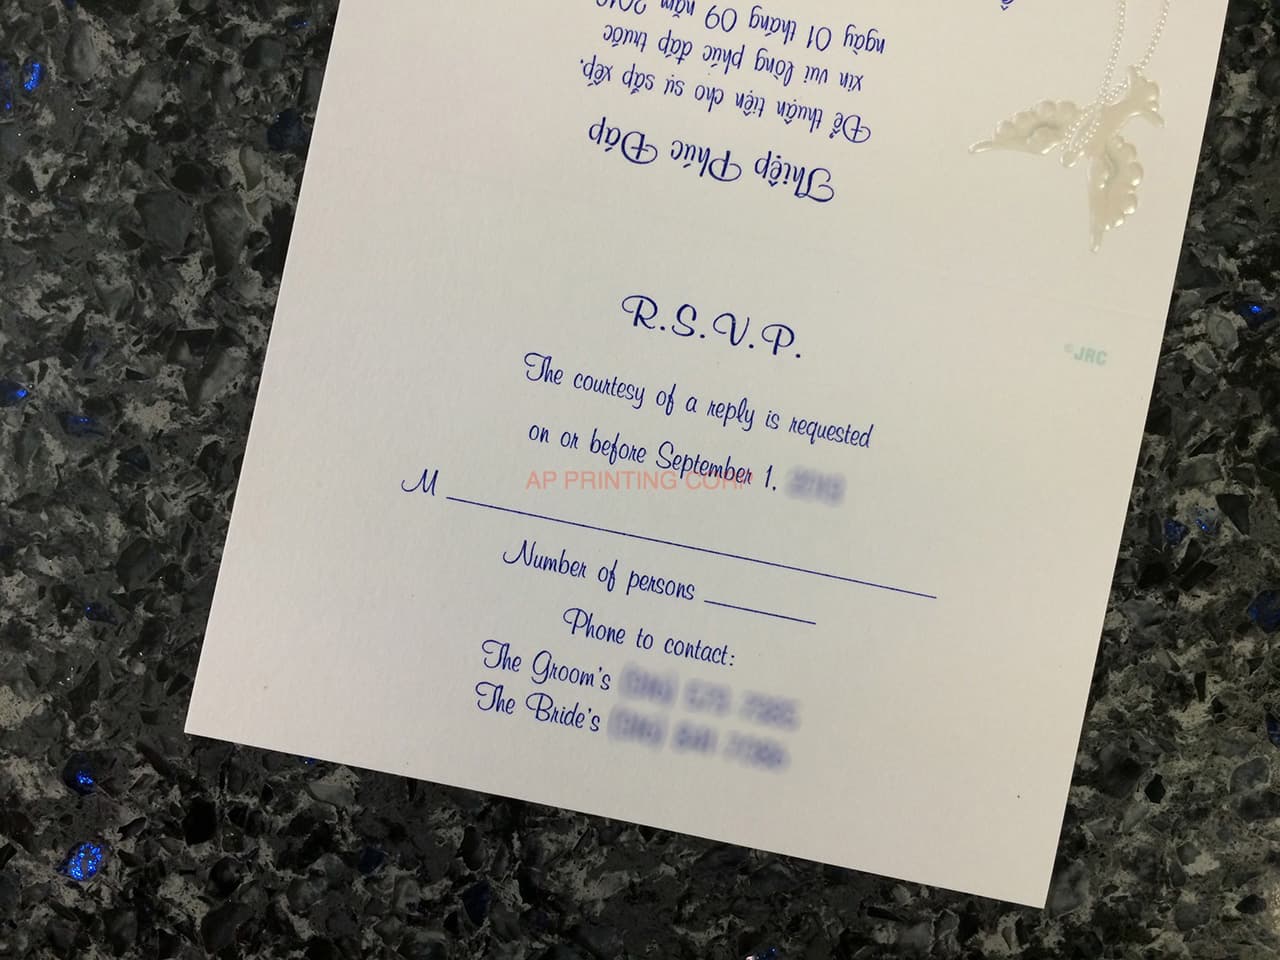 Thiệp Phúc Đáp
Để thuận tiện cho sự sắp xếp,
xin vui lòng phúc đáp trước
ngày 01 tháng 09 năm
R.S.V.P.
The courtesy of a reply is requested
on or before September 1,
M
Number of persons
Phone to contact:
The Groom's
The Bride's
©JRC
AP PRINTING CORP